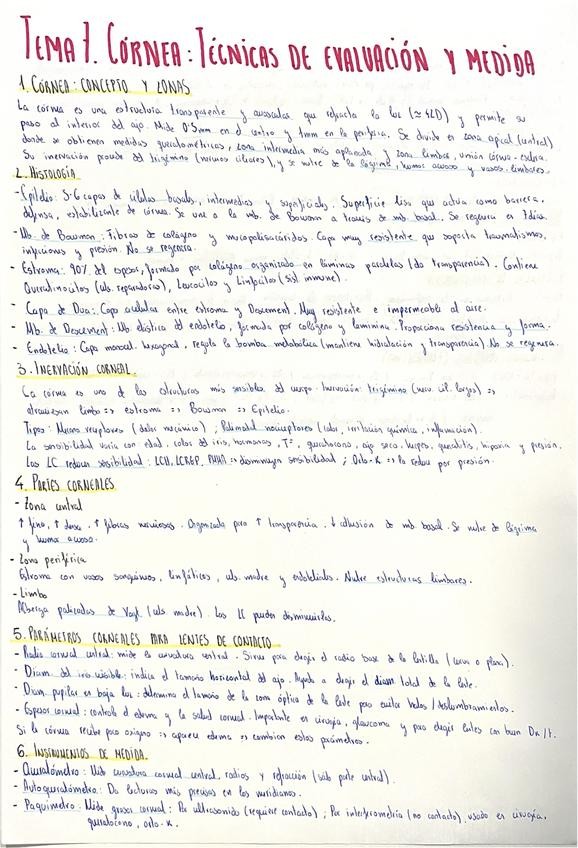 TEMA 7. CÓRNEA: TÉCNICAS DE EVALUACIÓN Y MEDIDA
1. CÓRNEA: CONCEPTO Y ZONAS
La córnea es una estructura transparente y avascular que refracta la luz (≈42D) y permite su
paso al interior del ojo. Mide 0'5mm en el centro y 1mm en la periferia. Se divide en zona apical (central)
donde se obtienen medidas queratométricas, zona intermedia más aplanada y zona limbar, unión córnea-esclera.
Su inervación procede del trigémino (nervios ciliares), y se nutre de la lágrima, humor acuoso y vasos limbares.
2. HISTOLOGÍA
- Epitelio: 5-6 capas de células basales, intermedias y superficiales. Superficie lisa que actúa como barrera,
defensa, estabilizante de córnea. Se une a la mb. de Bowman a través de mb. basal. Se regenera en 7 días.
- Mb. de Bowman: Fibras de colágeno y mucopolisacáridos. Capa muy resistente que soporta traumatismos,
infecciones y presión. No se regenera.
- Estroma: 90% del espesor, formado por colágeno organizado en láminas paralelas (da transparencia). Contiene
Queratinocitos (cels. reparadoras), Leucocitos y Linfocitos (sist. inmune).
- Capa de Dua: Capa acelular entre estroma y Descemet. Muy resistente e impermeable al aire.
- Mb. de Descemet: Mb elástica del endotelio, formada por colágeno y laminina. Proporciona resistencia y forma.
- Endotelio: Capa monocel. hexagonal, regula la bomba metabólica (mantiene hidratación y transparencia). No se regenera.
3. INERVACIÓN CORNEAL
La córnea es una de las estructuras más sensibles del cuerpo. Inervación: trigémino (nerv. cil. largos) =>
atraviesan limbo => estroma => Bowman => Epitelio.
Tipos: Mecano receptores (dolor mecánico); Polimodal nociceptores (calor, irritación química, inflamación).
La sensibilidad varía con edad, color del iris, hormonas, Tª, queratocono, ojo seco, herpes, queratitis, hipoxia y presión.
Las LC reducen sensibilidad: LCH, LCRGP, PMMA => disminuyen sensibilidad; Orto-K => la reduce por presión.
4. PARTES CORNEALES
- Zona central
↑ fina, ↑ densa, ↑ fibras nerviosas. Organizada para ↑ transparencia. ↓ adhesión de mb. basal. Se nutre de lágrima
y humor acuoso.
- Zona periférica
Estroma con vasos sanguíneos, linfáticos, cels. madre y endoteliales. Nutre estructuras limbares.
- Limbo
Alberga palizadas de Vogt (cels. madre). Las LC pueden disminuirlas.
5. PARÁMETROS CORNEALES PARA LENTES DE CONTACTO
- Radio corneal central: mide la curvatura central. Sirve para elegir el radio base de la lentilla (curva o plana).
- Diam. del iris visible: indica el tamaño horizontal del ojo. Ayuda a elegir el diam total de la lente.
- Diam. pupilar en baja luz: determina el tamaño de la zona óptica de la lente para evitar halos/deslumbramientos.
- Espesor corneal: controla el edema y la salud corneal. Importante en cirugía, glaucoma y para elegir lentes con buen Dk/t.
Si la córnea recibe poco oxígeno => aparece edema => cambian estos parámetros.
6. INSTRUMENTOS DE MEDIDA
- Queratómetro: Mide curvatura corneal central, radios y refracción (solo parte central).
- Autoqueratómetro: Da lecturas más precisas en los meridianos.
- Paquímetro: Mide grosor corneal: Por ultrasonido (requiere contacto); Por interferometría (no contacto) usado en cirugía,
queratocono, orto-k.